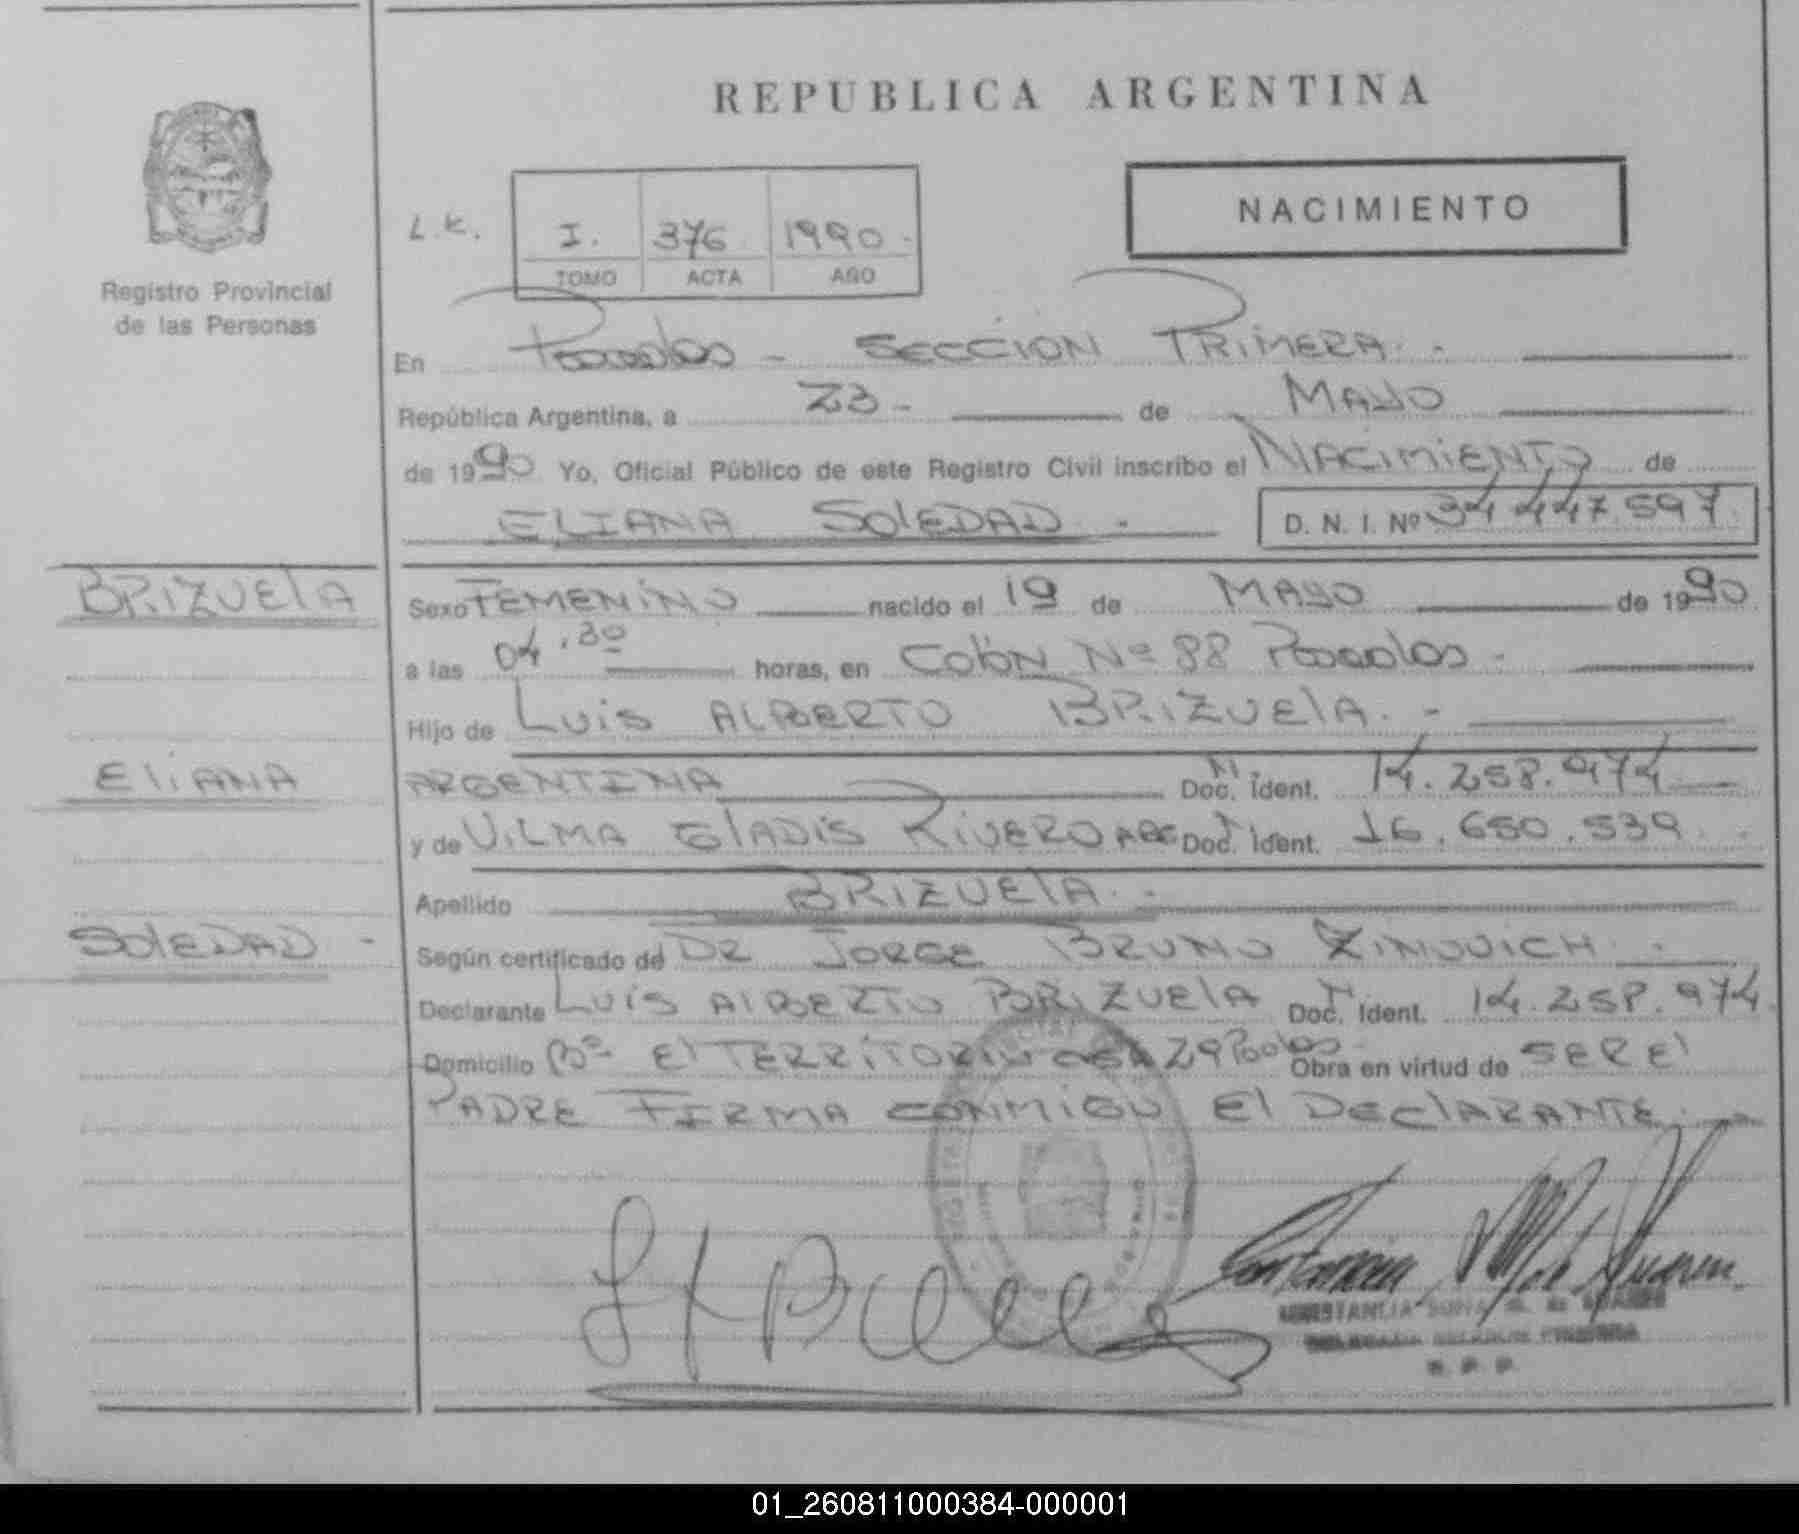 REPUBLICA ARGENTINA
NACIMIENTO
Registro Provincial
de las Personas
L.K.
I. 376 1990.
TOMO ACTA AÑO
En Posadas - SECCION PRIMERA. -
República Argentina, a 23 - de MAYO
de 1990 Yo, Oficial Público de este Registro Civil inscribo el NACIMIENTO de
ELIANA SOLEDAD. - D. N. I. Nº 34.447.597
BRIZUELA
Sexo FEMENINO nacido el 19 de MAYO de 1990
a las 04.30 horas, en COLÓN Nº 88 Posadas -
Hijo de LUIS ALBERTO BRIZUELA. -
ELIANA
ARGENTINA Doc. Ident. 14.258.974
y de VILMA GLADIS RIVERO ARG Doc. Ident. 16.650.539. -
Apellido BRIZUELA. -
SOLEDAD -
Según certificado de DR JORGE BRUNO ZINOVICH. -
Declarante LUIS ALBERTO BRIZUELA Doc. Ident. 14.258.974.
Domicilio Bº El TERRITORIO 29 Obra en virtud de SER El
PADRE FIRMA CONMIGO El DECLARANTE. -
R. P. P.
01_260811000384-000001